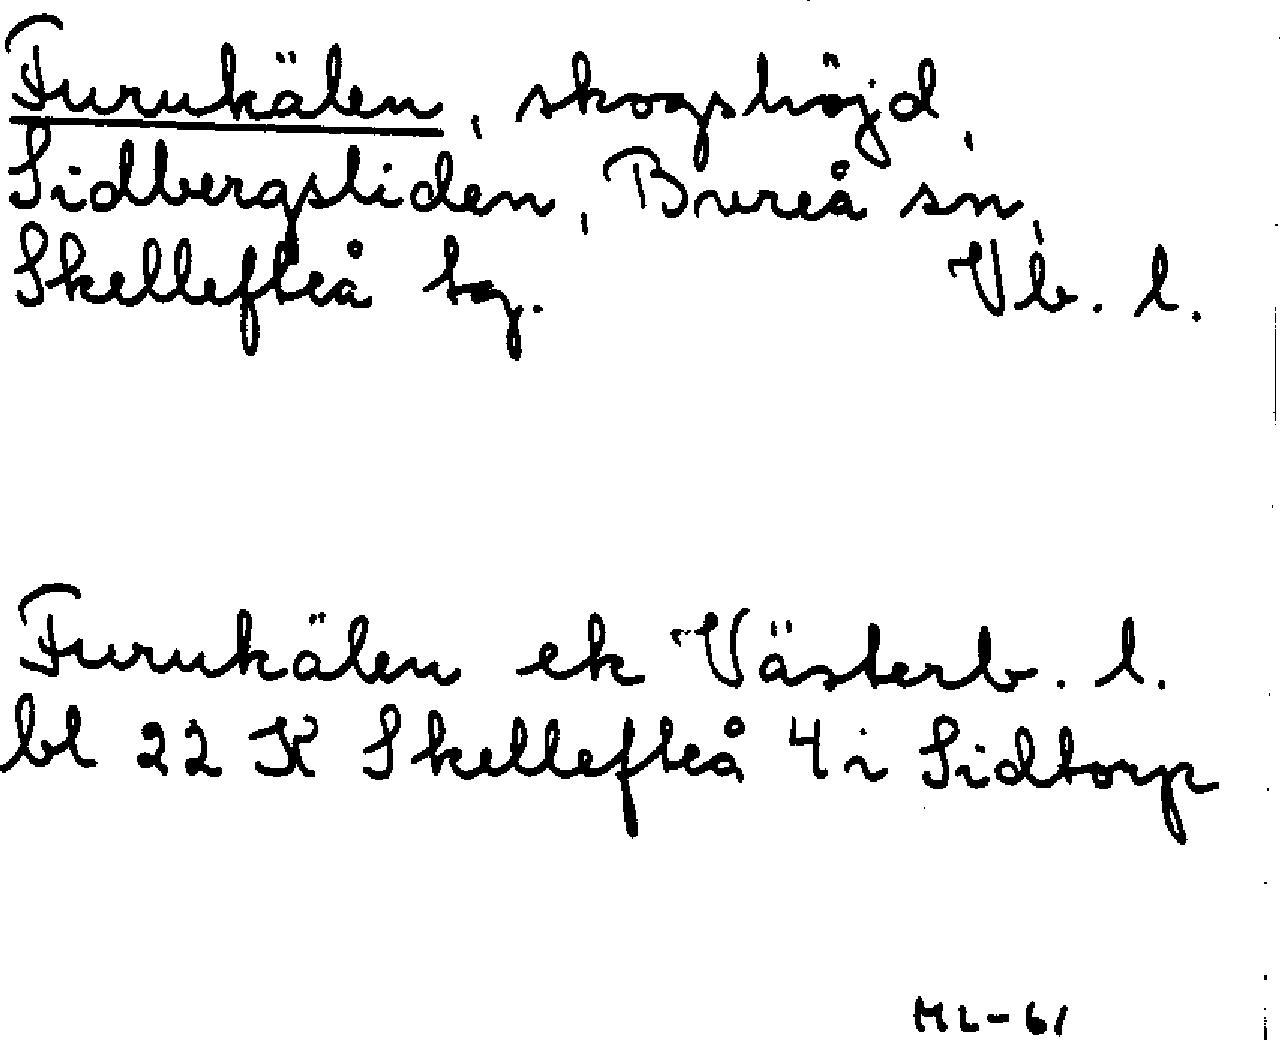 Furukälen, skogshöjd,
Sidbergsliden, Bureå sn,
Skellefteå tg. Vb. l.
Furukälen ek Västerb. l.
bl 22 K Skellefteå 4 i Sidtorp
ML-61